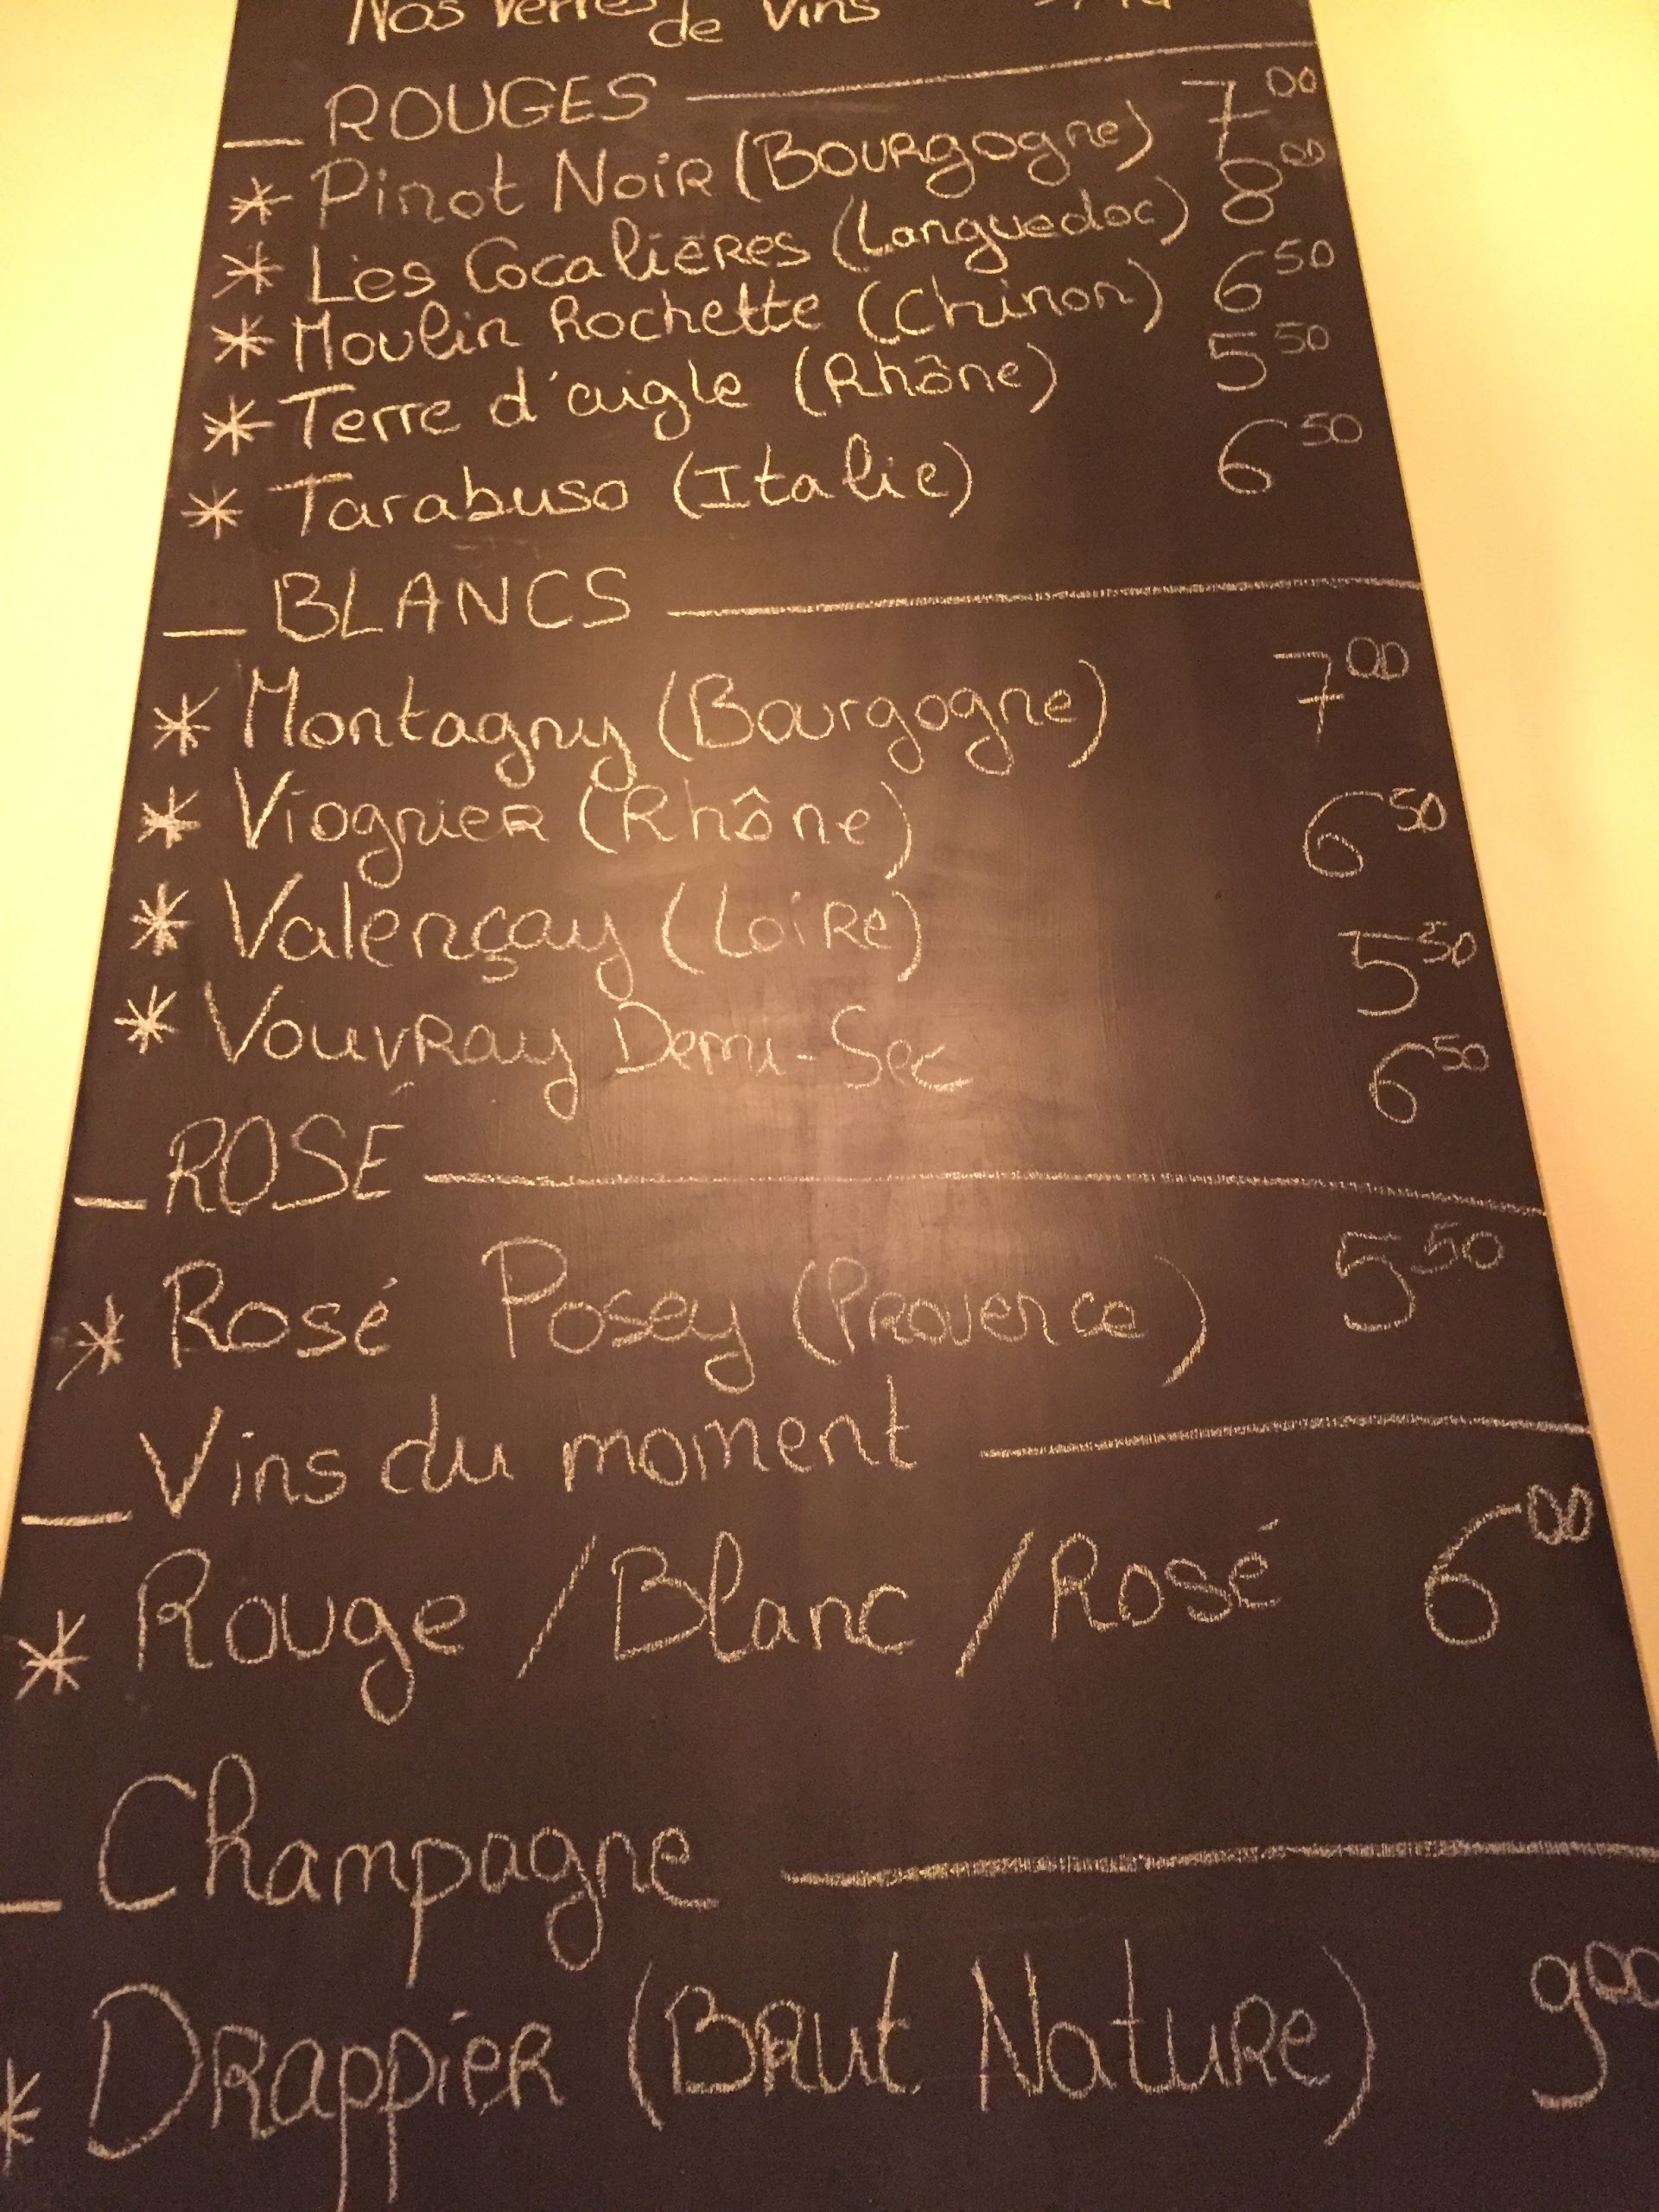 Nos Verres de Vins
_ ROUGES
* Pinot Noir (Bourgogne) 7 00
* Les Cocalières (Languedoc) 8 00
* Moulin Rochette (Chinon) 6 50
* Terre d'aigle (Rhône) 5 50
* Tarabuso (Italie) 6 50
_ BLANCS
* Montagny (Bourgogne) 7 00
* Viognier (Rhône) 6 50
* Valençay (Loire) 5 50
* Vouvray Demi-Sec 6 50
_ ROSÉ
* Rosé Posey (Provence) 5 50
_ Vins du moment
* Rouge / Blanc / Rosé 6 00
_ Champagne
* Drappier (Brut Nature) 9 00